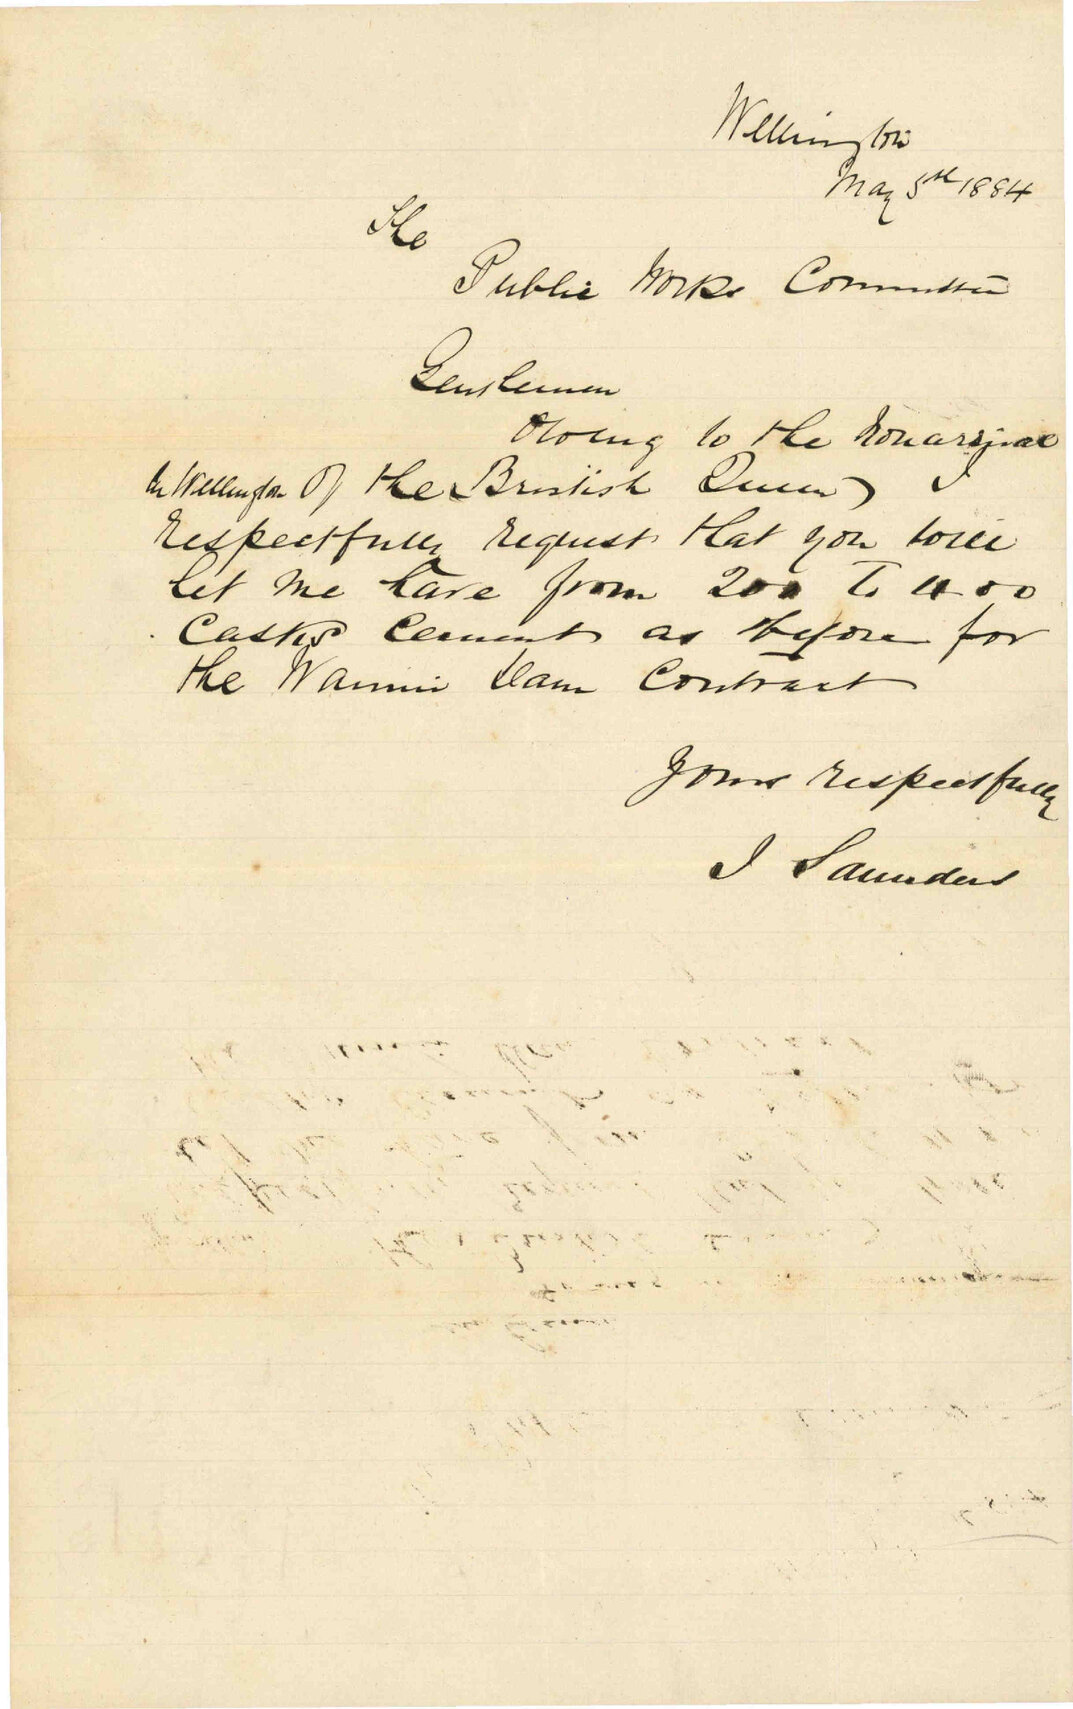 Wellington
May 5th 1884
The
Public Works Committee
Gentlemen
Owing to the Nonarrival
in Wellington of the British Queen I
respectfully request that you will
let me have from 200 to 400
Casks Cement as before for
the Wainui Dam Contract
Yours respectfully
J Saunders